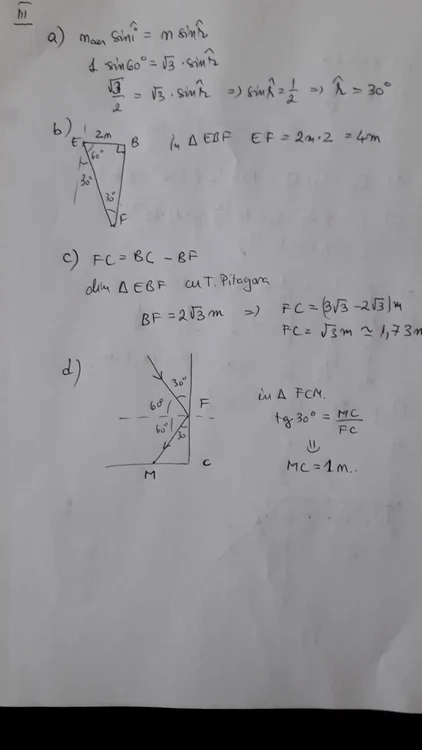 III
a) n_aer sin î = n sin r̂
1 sin 60° = √3 · sin r̂
√3/2 = √3 · sin r̂ => sin r̂ = 1/2 => r̂ = 30°
b) E i 2m B în Δ EBF EF = 2m·2 = 4m
60°
30°
30°
F
c) FC = BC - BF
din Δ EBF cu T. Pitagora
BF = 2√3 m => FC = (3√3 - 2√3) m
FC = √3 m ≃ 1,73 m
d) 30°
60° F în Δ FCM.
60° 30 tg 30° = MC/FC
⇓
M C MC = 1 m.